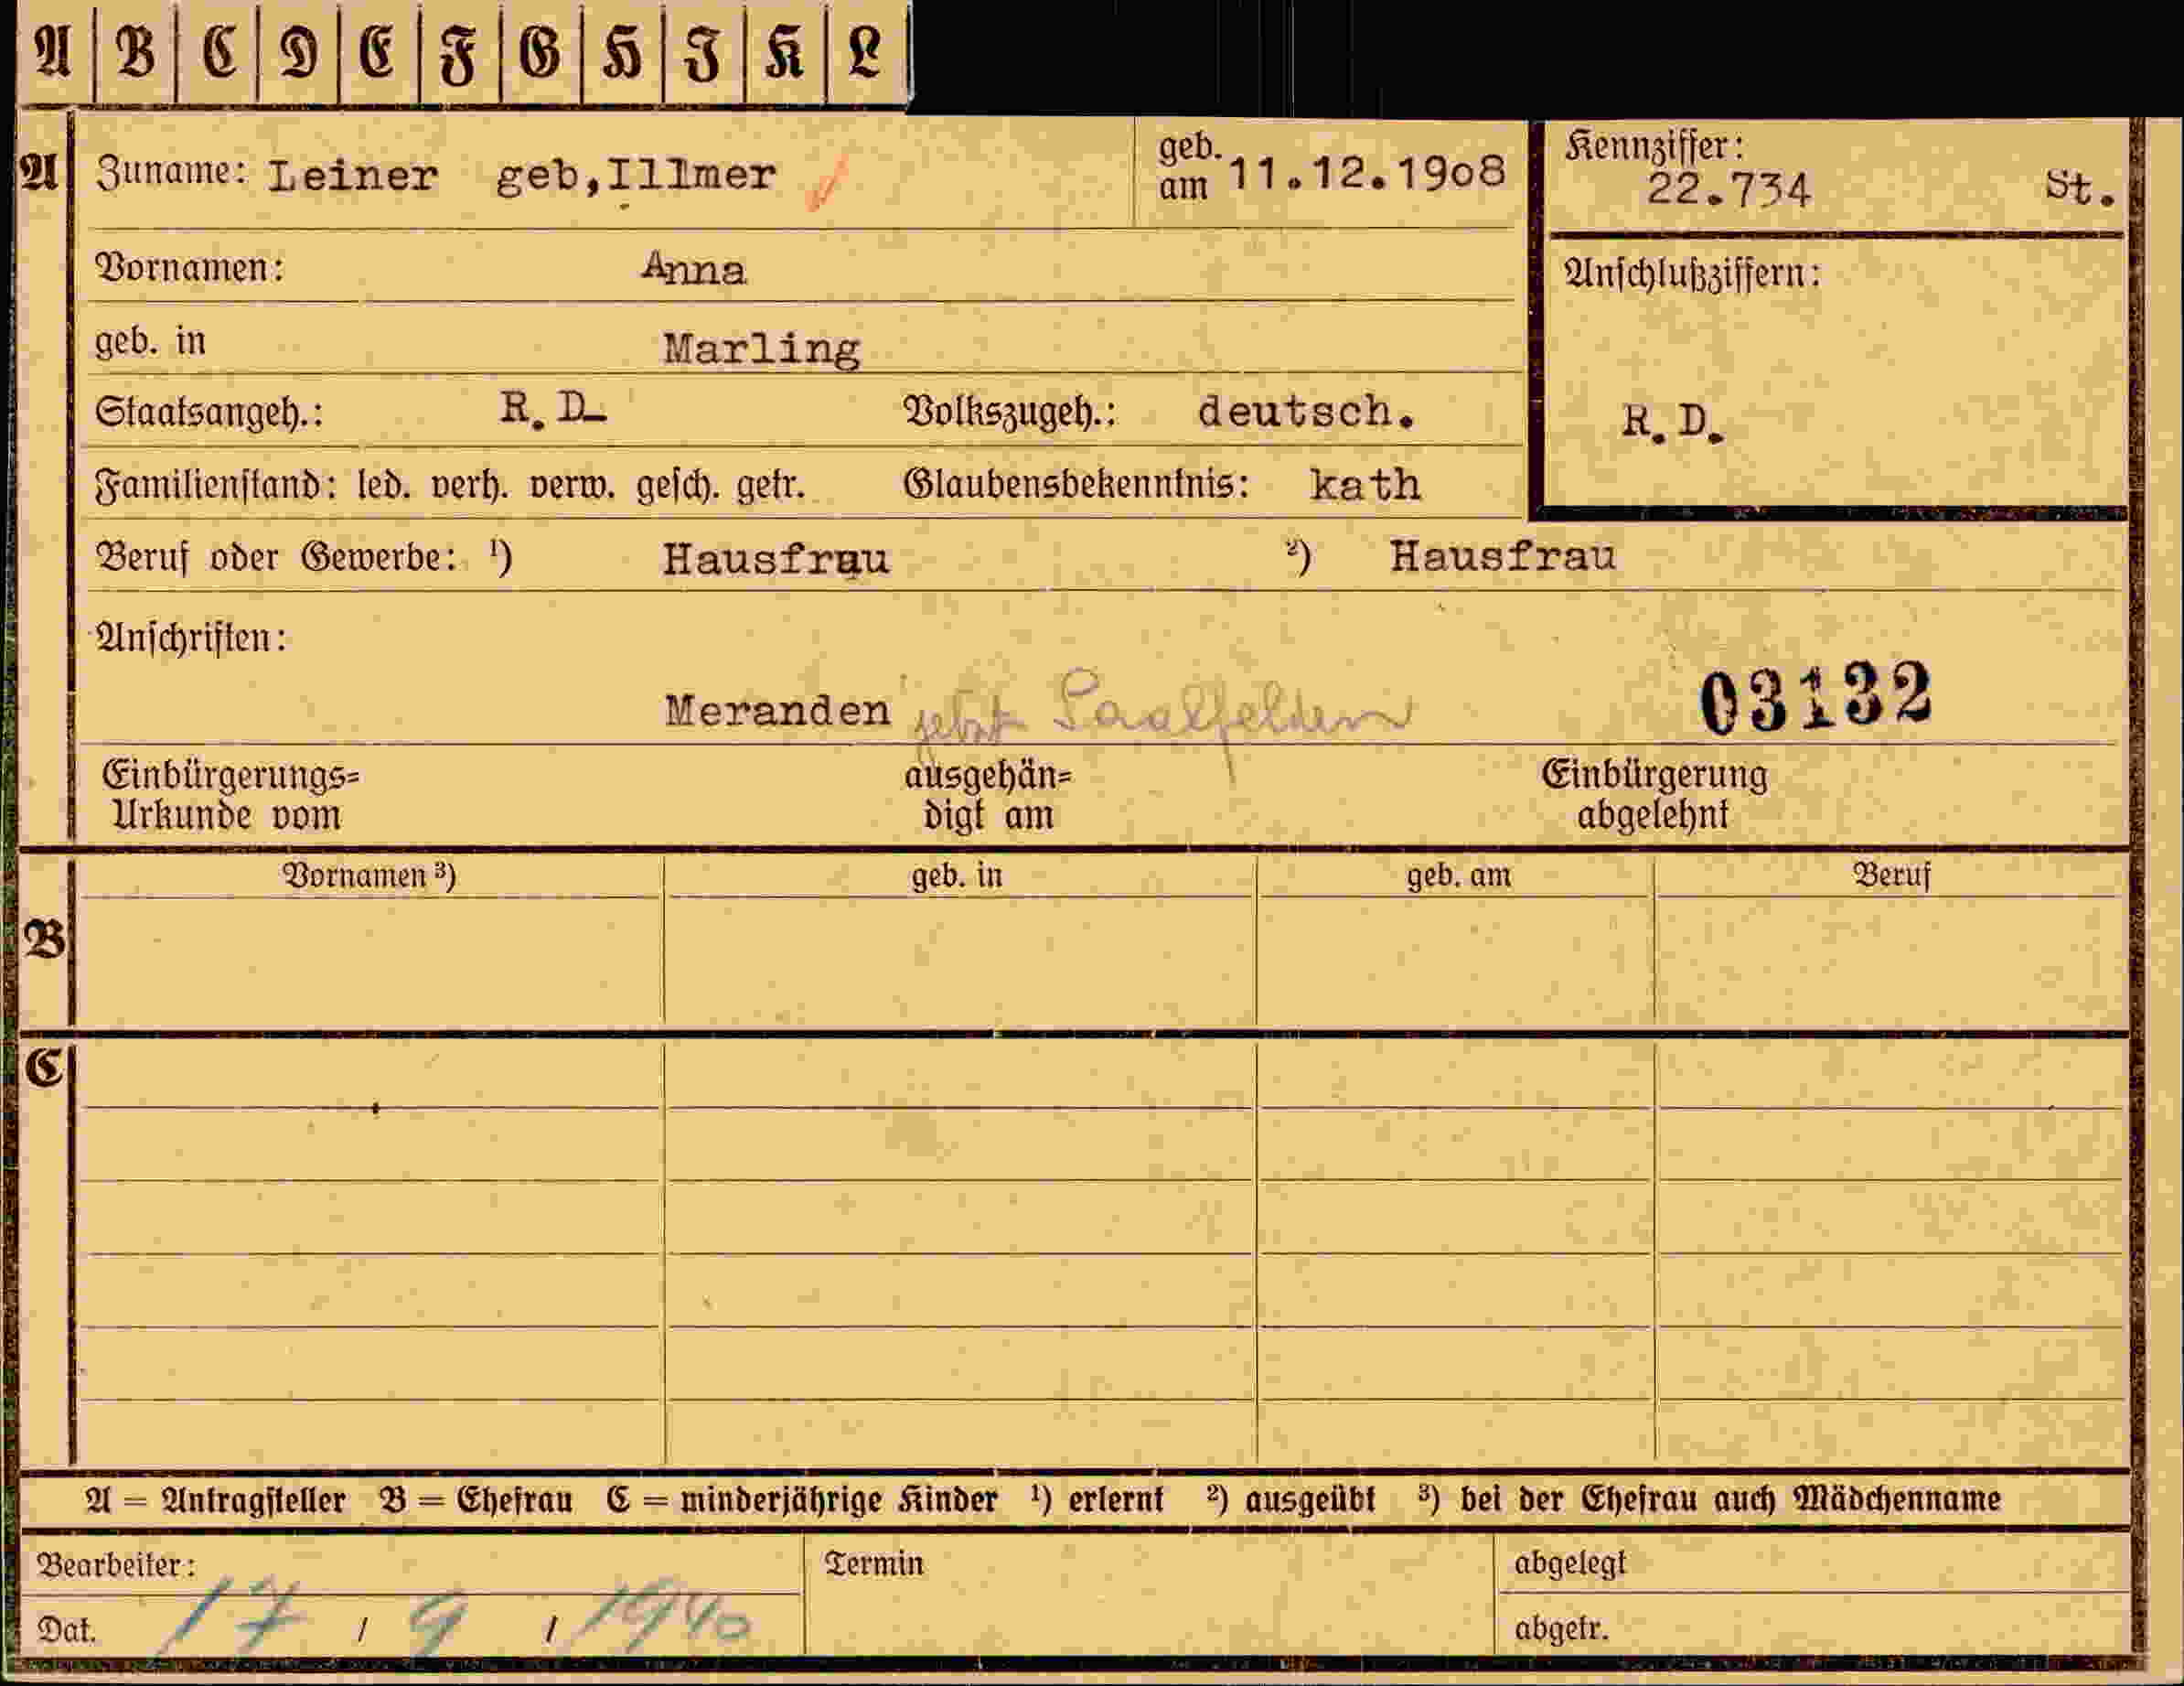 A B C D E F G H I K L
A Zuname: Leiner geb,Illmer geb. am 11.12.1908 Kennziffer: 22.734 St.
Vornamen: Anna Anschlußziffern:
geb. in Marling
Staatsangeh.: R.D. Volkszugeh.: deutsch. R.D.
Familienstand: led. verh. verw. gesch. getr. Glaubensbekenntnis: kath
Beruf oder Gewerbe: ¹) Hausfrau ²) Hausfrau
Anschriften:
Meranden jetzt Saalfelden 03132
Einbürgerungs= ausgehän= Einbürgerung
Urkunde vom digt am abgelehnt
Vornamen ³) geb. in geb. am Beruf
B
C
A = Antragsteller B = Ehefrau C = minderjährige Kinder ¹) erlernt ²) ausgeübt ³) bei der Ehefrau auch Mädchenname
Bearbeiter: Termin abgelegt
Dat. 17 / 9 / 1940 abgetr.